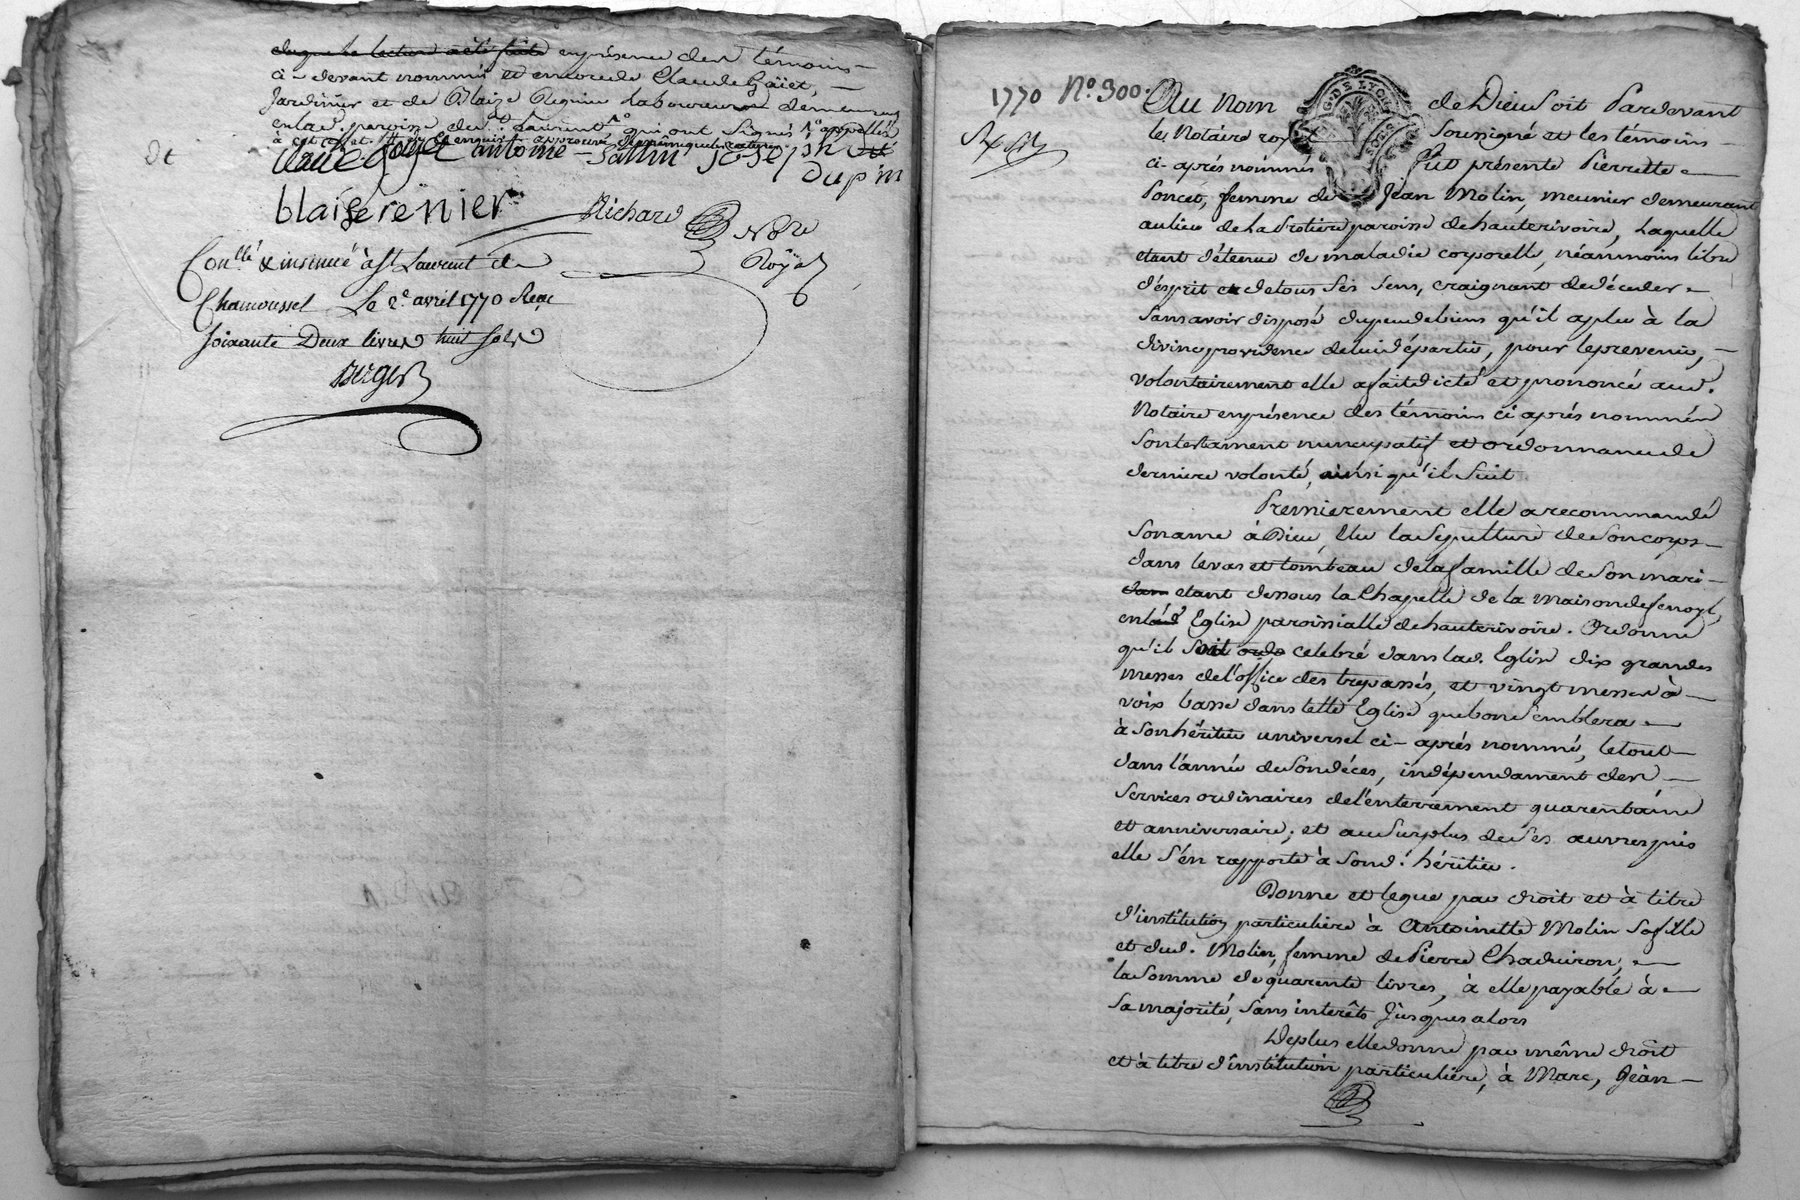 duquel lecture a été faite en présence des témoins
ci-devant nommés et encore de Claude Gaiet,
Jardinier et de Blaize Regnier Laboureur demeurans
en lad. paroisse de St. Laurent qui ont Signés
De
antoine Joseph
dupin
blaise renier Richard Nore
Royal
Conllé & insinué à St Laurent de
Chamousset Le 2e avril 1770 Reçu
soixante Deux livres huit sols
Berger
1770 No. 300.
G. DE LYON
Au nom de Dieu Soit Pardevant
les Notaire royal Soussigné et les témoins
ci-aprés nommés Fut présente Pierrette
Poncet, femme de Jean Molin, meunier demeurant
au lieu de la Protiere paroisse de hauterivoire, Laquelle
etant détenue de maladie corporelle, néanmoins libre
d'esprit et de tous Ses Sens, craignant de déceder
Sans avoir disposé du peu de biens qu'il a plu à la
divine providence de lui départir, pour le prevenir,
volontairement elle a fait dicté et prononcé aud.
Notaire en présence des témoins ci aprés nommés
Son testament nuncupatif et ordonnance de
derniere volonté, ainsi qu'il Suit
Premierement elle a recommandé
Son ame à Dieu, Elu la Sepulture de Son corps
dans le vas et tombeau de la famille de Son mari
dans etant dessous la Chapelle de la Maison de fenoyl,
en lad. Eglise paroissialle de hauterivoire. Ordonne
qu'il Soit celebré dans lad. Eglise dix grandes
messes de l'office des trepassés, et vingt messes à
voix basse dans telle Eglise que bon Semblera
à Son héritier universel ci-aprés nommé, le tout
dans l'année de Son décés, indépendament des
Services ordinaires de l'enterrement quarentaine
et anniversaire; et au Surplus de Ses œuvres pies
elle S'en rapporte à Sond. héritier.
Donne et legue par droit et à titre
d'institution particuliere à Antoinette Molin Sa fille
et dud. Molin, femme de Pierre Chaduiron,
la Somme de quarente livres, à elle payable à
Sa majorité, Sans interêts Jusques alors
De plus elle donne par même droit
et à titre d'institution particuliére, à Marc, Jean